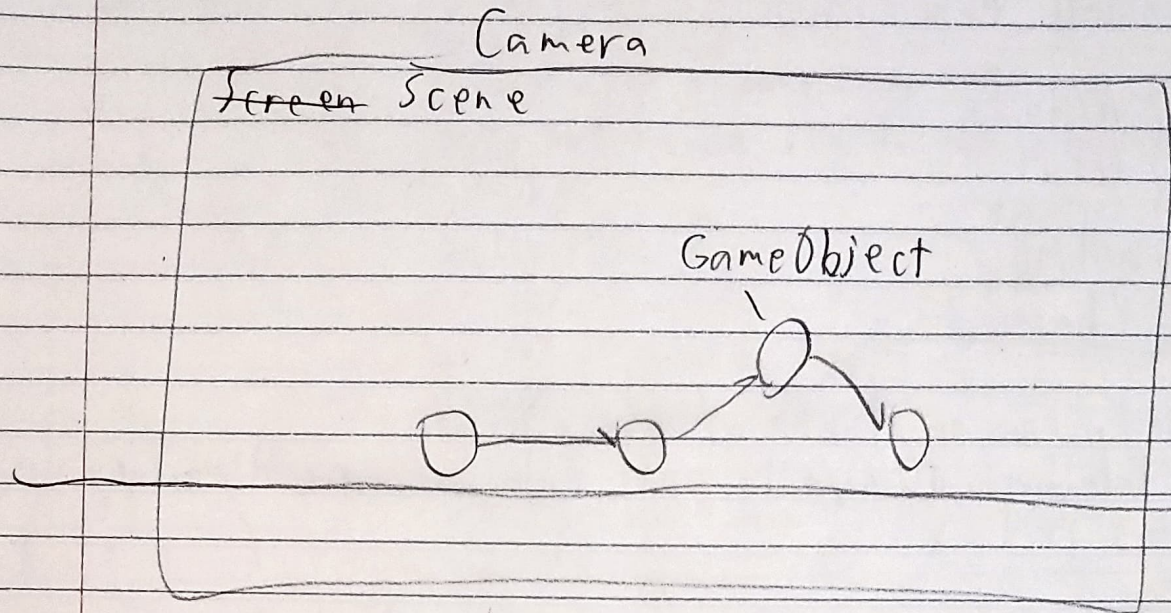 Camera
Screen Scene
GameObject